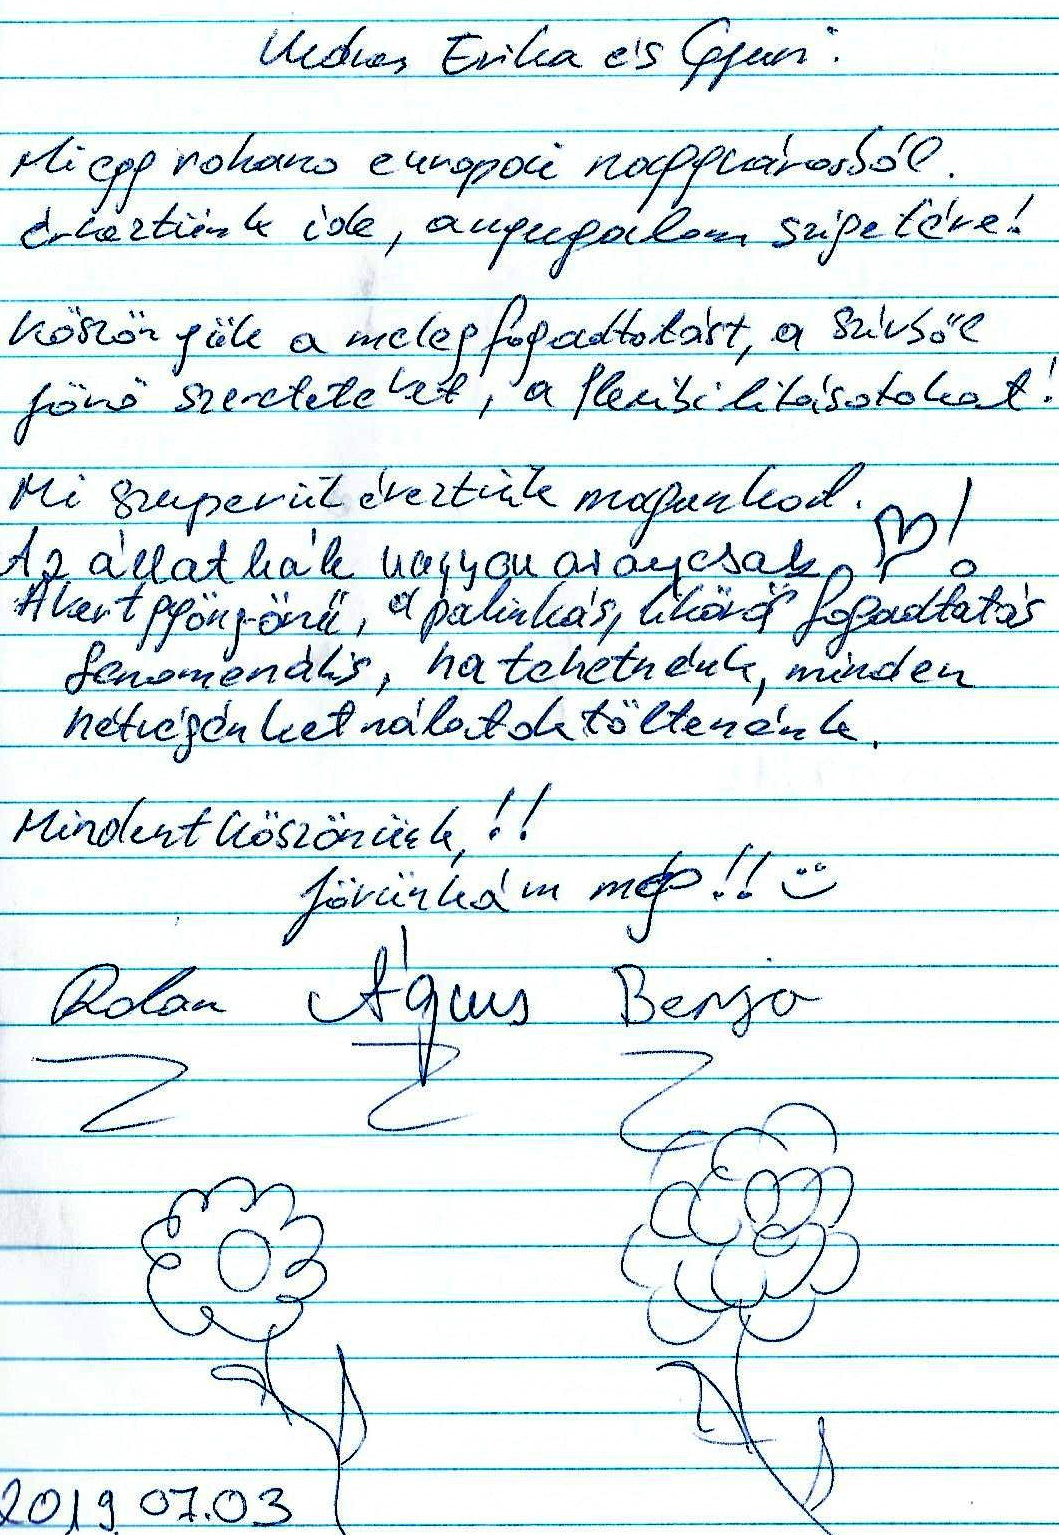 Kedves Erika és Gyuri!
Mi egy rohano europai nagyvárosból
érkeztünk ide, a nyugalom szigetére!
Köszönjük a meleg fogadtatást, a szívből
jövő szereteteket, a flexibilitásotokat!
Mi szuperül éreztük magunkat.
Az állatkák nagyon aranyosak!
A kert gyönyörű, a pálinkás, likőrös fogadtatás
fenomenális, ha tehetnénk, minden
hétvégénket nálatok töltenénk.
Mindent köszönünk!!
Jövünk ám még!!
Ágnes Benjo
2019 07.03